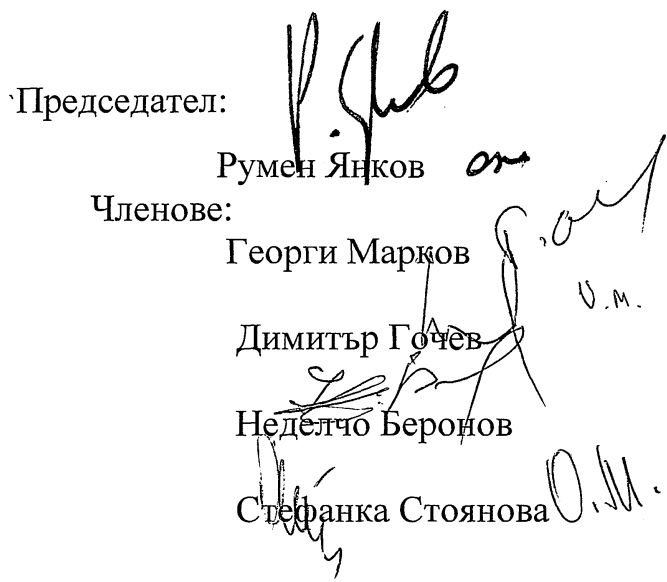 Председател:
Румен Янков
Членове:
Георги Марков
Димитър Гочев
Неделчо Беронов
Стефанка Стоянова